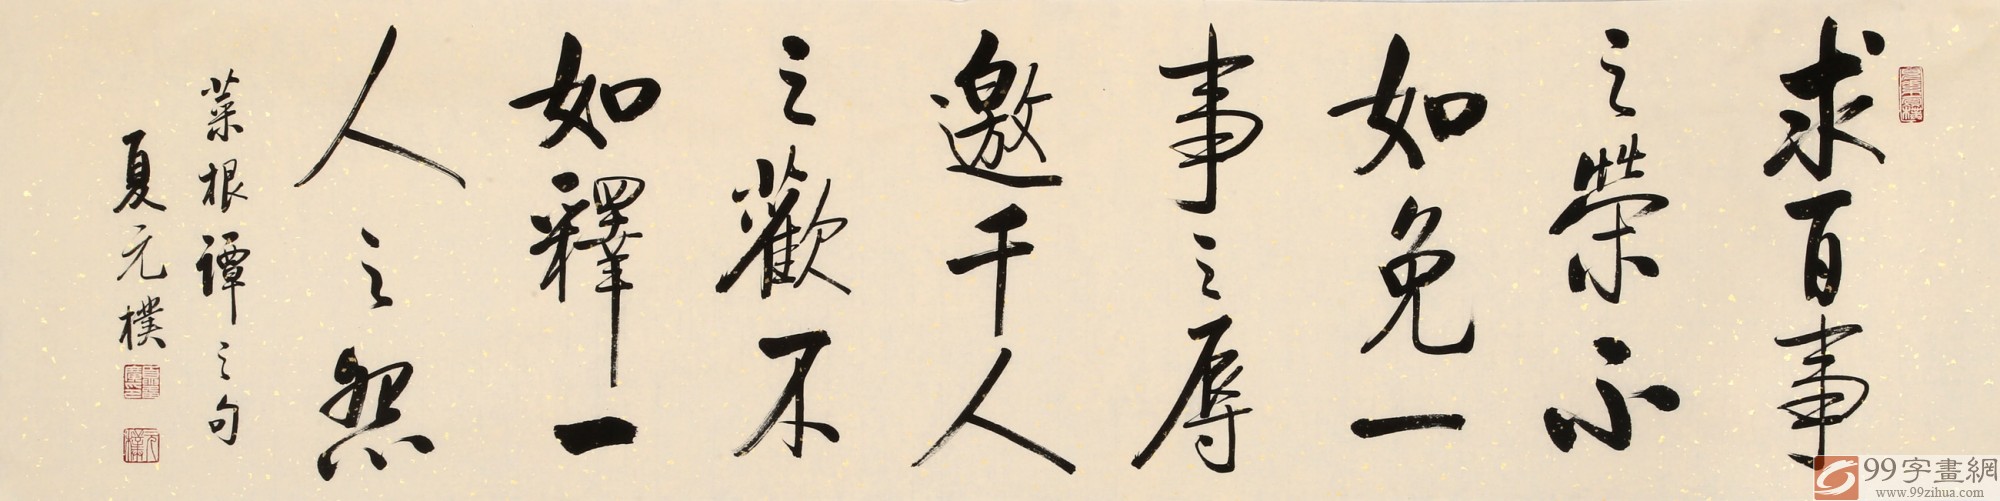 求百事
之榮不
如免一
事之辱
邀千人
之歡不
如釋一
人之怨
菜根譚之句
夏元樸
99字畫網
www.99zihua.com